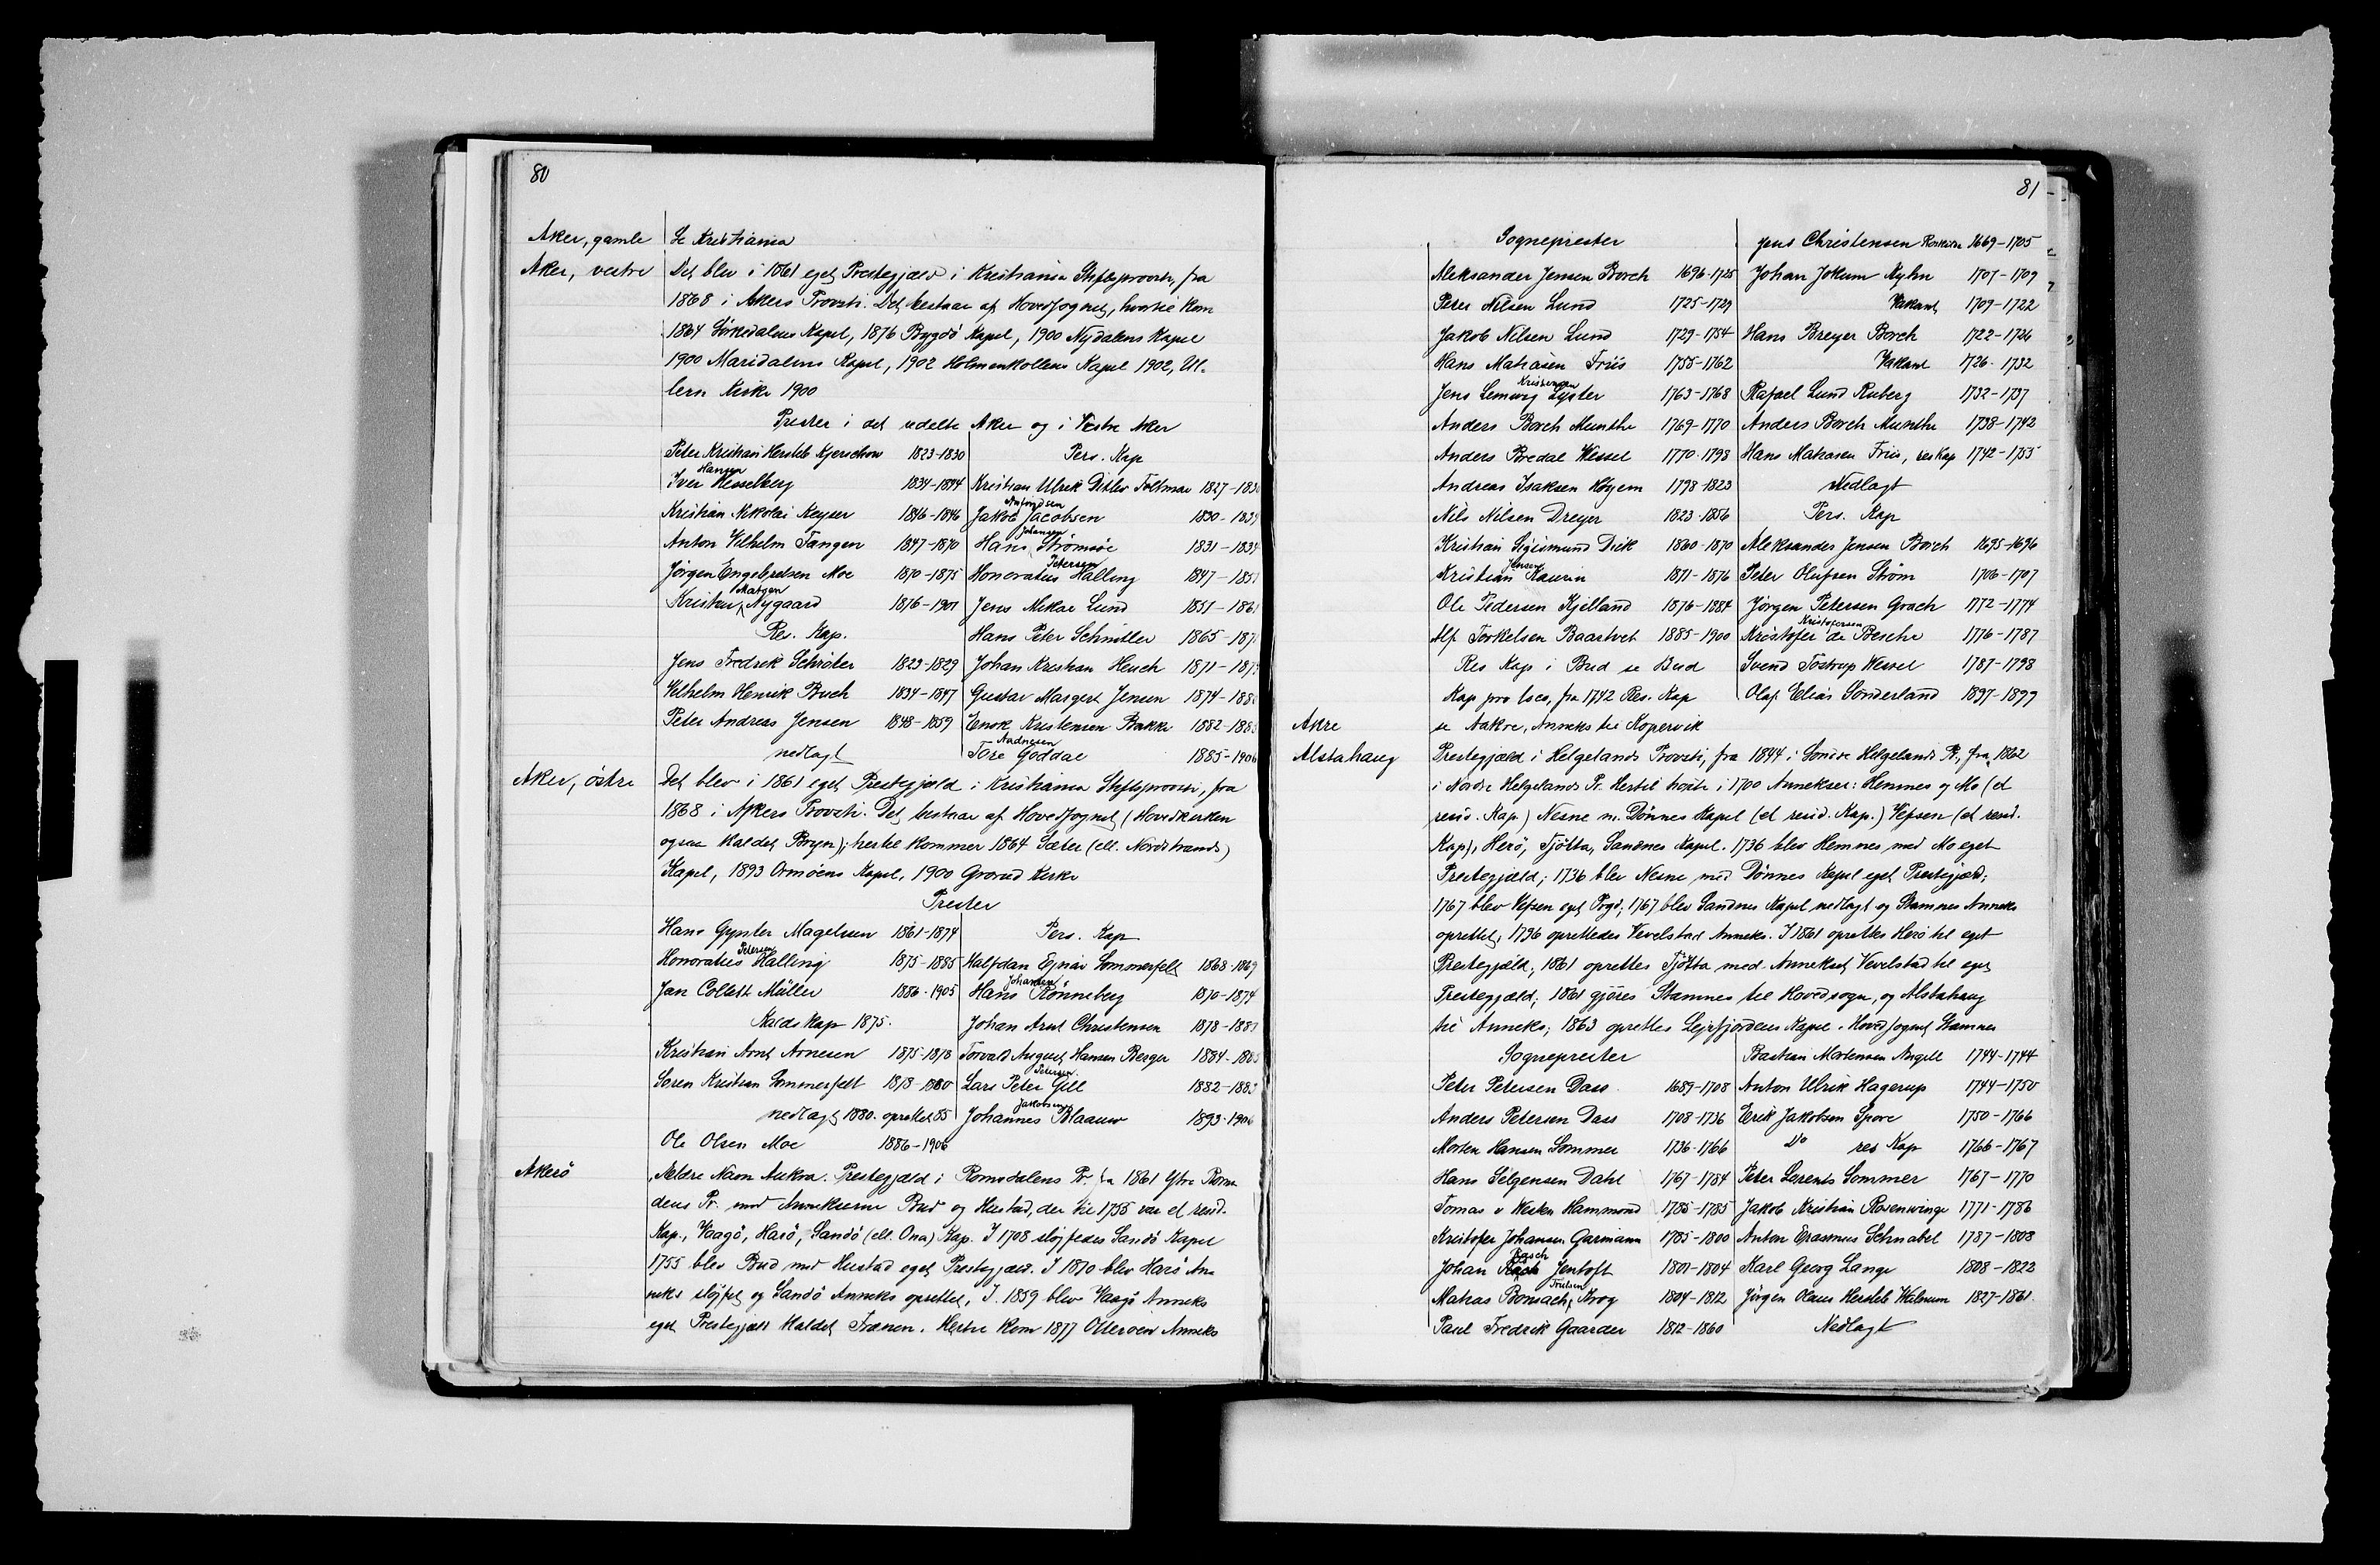 80
Aker, gamle Se Kristiania
Aker, vestre Det blev i 1861 eget Prestegjæld i Kristiania Stiftsprovsti, fra
1868 i Akers Provsti. Det bestaar af Hovedsognet, hvortil kom
1864 Sørkedalens Kapel, 1876 Bygdö Kapel, 1900 Nydalens Kapel
1900 Maridalens Kapel, 1902 Holmenkollens Kapel 1902, Ul-
lern Kirke 1900
Prester i det udelte Aker og i Vestre Aker
Peter Kristian Hersleb Kjerschow 1823-1830
Iver Hansen Hesselberg 1834-1844
Kristian Nikolai Keyser 1846-1846
Anton Vilhelm Fangen 1847-1870
Jørgen Engebretsen Moe 1870-1875
Kristen Matgen Nygaard 1876-1901
Res. Kap.
Jens Fredrik Schröter 1823-1829
Vilhelm Henrik Buch 1834-1847
Peter Andreas Jensen 1848-1859
nedlagt
Pers. Kap
Kristian Ulrik Ditlev Foltmar 1827-1830
Jakob Jacobsen 1830-1834
Hans Johansen Strømsøe 1831-1834
Honoratus Petersen Halling 1847-185
Jens Mikal Lund 1851-1861
Hans Peter Schnitler 1865-187
Johan Kristian Heuch 1871-187
Gustav Margert Jensen 1874-188
Enok Kristensen Bakke 1882-188
Tore Aadnesen Goddal 1885-1906
Aker, östre Det blev i 1861 eget Prestegjæld i Kristiania Stiftsprovsti, fra
1868 i Akers Provsti. Det bestaar af Hovedsognet (Hovedkirken
ogsaa kaldet Bryn); hertil kommer 1864 Sæter (ell. Nordstrands)
Kapel, 1893 Ormöens Kapel, 1900 Grorud Kirke
Prester
Hans Gynter Magelssen 1861-1874
Honoratus Petersen Halling 1875-1885
Jan Collett Müller 1886-1905
Kalds Kap 1875.
Kristian Arnt Arnesen 1875-1878
Søren Kristian Sommerfelt 1878-1880
nedlagt 1880. oprettet 85
Ole Olsen Moe 1886-1906
Pers. Kap
Halfdan Ejnar Sommerfelt 1868-1869
Hans Johansen Rönneberg 1870-1874
Johan Arnt Christensen 1878-1881
Torvald August Hansen Berger 1884-188
Lars Peter Petersen Gill 1882-1883
Johannes Jakobsen Blaauw 1893-1906
Akerö Ældre Navn Aukra. Prestegjæld i Romsdalens Pr. fra 1861 Ytre Roms
dens Pr. med Annekserne Bud og Hustad, der til 1755 var et resid.
Kap., Vaagö, Harö, Sandö (ell. Ona) Kap. I 1708 slöjfedes Sandö Kapel
1755 blev Bud med Hustad eget Prestegjæld. I 1870 blev Harö An-
neks slöjfet og Sandö Anneks oprettet, I. 1859 blev Vaagö Anneks
eget Prestegjæld kaldet Frænen. Hertil kom 1877 Otteröen Anneks
81
Sogneprester
Aleksander Jensen Borch 1696-1725
Peter Nilsen Lund 1725-1729
Jakob Nilsen Lund 1729-1754
Hans Matiasen Friis 1755-1762
Jens Lemvig Kristensen Lyster 1763-1768
Anders Borch Munthe 1769-1770
Anders Bredal Wessel 1770-1798
Andreas Isaksen Høyem 1798-1823
Nils Nilsen Dreyer 1823-1856
Kristian Sigismund Dick 1860-1870
Kristian Jensen Kaurin 1871-1876
Ole Pedersen Kjelland 1876-1884
Alf Torkelsen Baastvet 1885-1900
Res Kap i Bud se Bud
Kap pro loco, fra 1742 Res. Kap
Jens Christensen 1669-1705
Johan Jokum Kyhn 1707-1709
Vakant 1709-1722
Hans Breyer Borch 1722-1726
Vakant 1726-1732
Rafael Lund Ruberg 1732-1737
Anders Borch Munthe 1738-1742
Hans Matiasen Friis, res Kap 1742-1755
Nedlagt
Pers. Kap
Aleksander Jensen Borch 1695-1696
Peter Olufsen Strøm 1706-1707
Jørgen Petersen Grach 1772-1774
Kristofer Kristofersen de Besche 1776-1787
Svend Töstrup Wessel 1787-1798
Olaf Elias Sönderland 1897-1899
Akre se Aakre, Anneks til Kopervik
Alstahaug Prestegjæld i Helgelands Provsti, fra 1844 i Söndre Helgelands Pr., fra 1862
i Nordre Helgelands Pr. Hertil hørte i 1700 Annekser: Hemnes og Mo (et
resid. Kap.) Nesne m. Dönnes Kapel (et resid. Kap.) Vefsen (et resid.
Kap), Herö, Tjötta, Sandnes Kapel. 1736 blev Hemnes med Mo eget
Prestegjæld; 1736 blev Nesne med Dönnes Kapel eget Prestegjæld;
1767 blev Vefsen eget Prgd; 1767 blev Sandnes Kapel nedlagt og Stamnes Anneks
oprettet, 1796 oprettedes Vevelstad Anneks. I 1861 oprettes Herö til eget
Prestegjæld; 1861 oprettes Tjötta med Annekset Vevelstad til eget
Prestegjæld; 1861 gjöres Stamnes til Hovedsogn, og Alstahaug
til Anneks; 1863 oprettes Lejrfjordens Kapel i Hovedsognet Stamnes
Sogneprester
Peter Petersen Dass 1689-1708
Anders Petersen Dass 1708-1736
Morten Hansen Sommer 1736-1766
Hans Selgensen Dahl 1767-1784
Tomas v Westen Hammond 1785-1785
Kristofer Johansen Garmann 1785-1800
Johan Rasch Jentoft 1801-1804
Matias Bonsach Trulsen Krog 1804-1812
Paul Fredrik Gaarder 1812-1860
Bastian Mortensen Angell 1744-1744
Anton Ulrik Hagerup 1744-1750
Erik Jakobsen Spore 1750-1766
Do res Kap 1766-1767
Peter Lorents Sommer 1767-1770
Jakob Kristian Rosenvinge 1771-1786
Anton Erasmus Schnabel 1787-1808
Karl Georg Lange 1808-1822
Jørgen Olaus Hersleb Walnum 1827-1861
Nedlagt